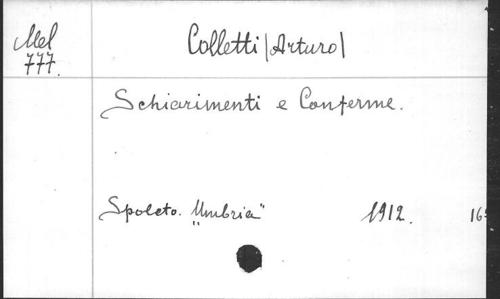 Mel
777.
Colletti (Arturo)
Schiarimenti e Conferme.
Spoleto. "Umbria" 1912. 16